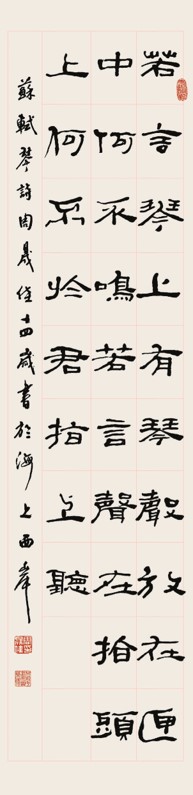 若言琴上有琴聲放在匣
中何不鳴若言聲在指頭
上何不於君指上聽
蘇軾琴詩周晟佳十四歲書於海上西岸